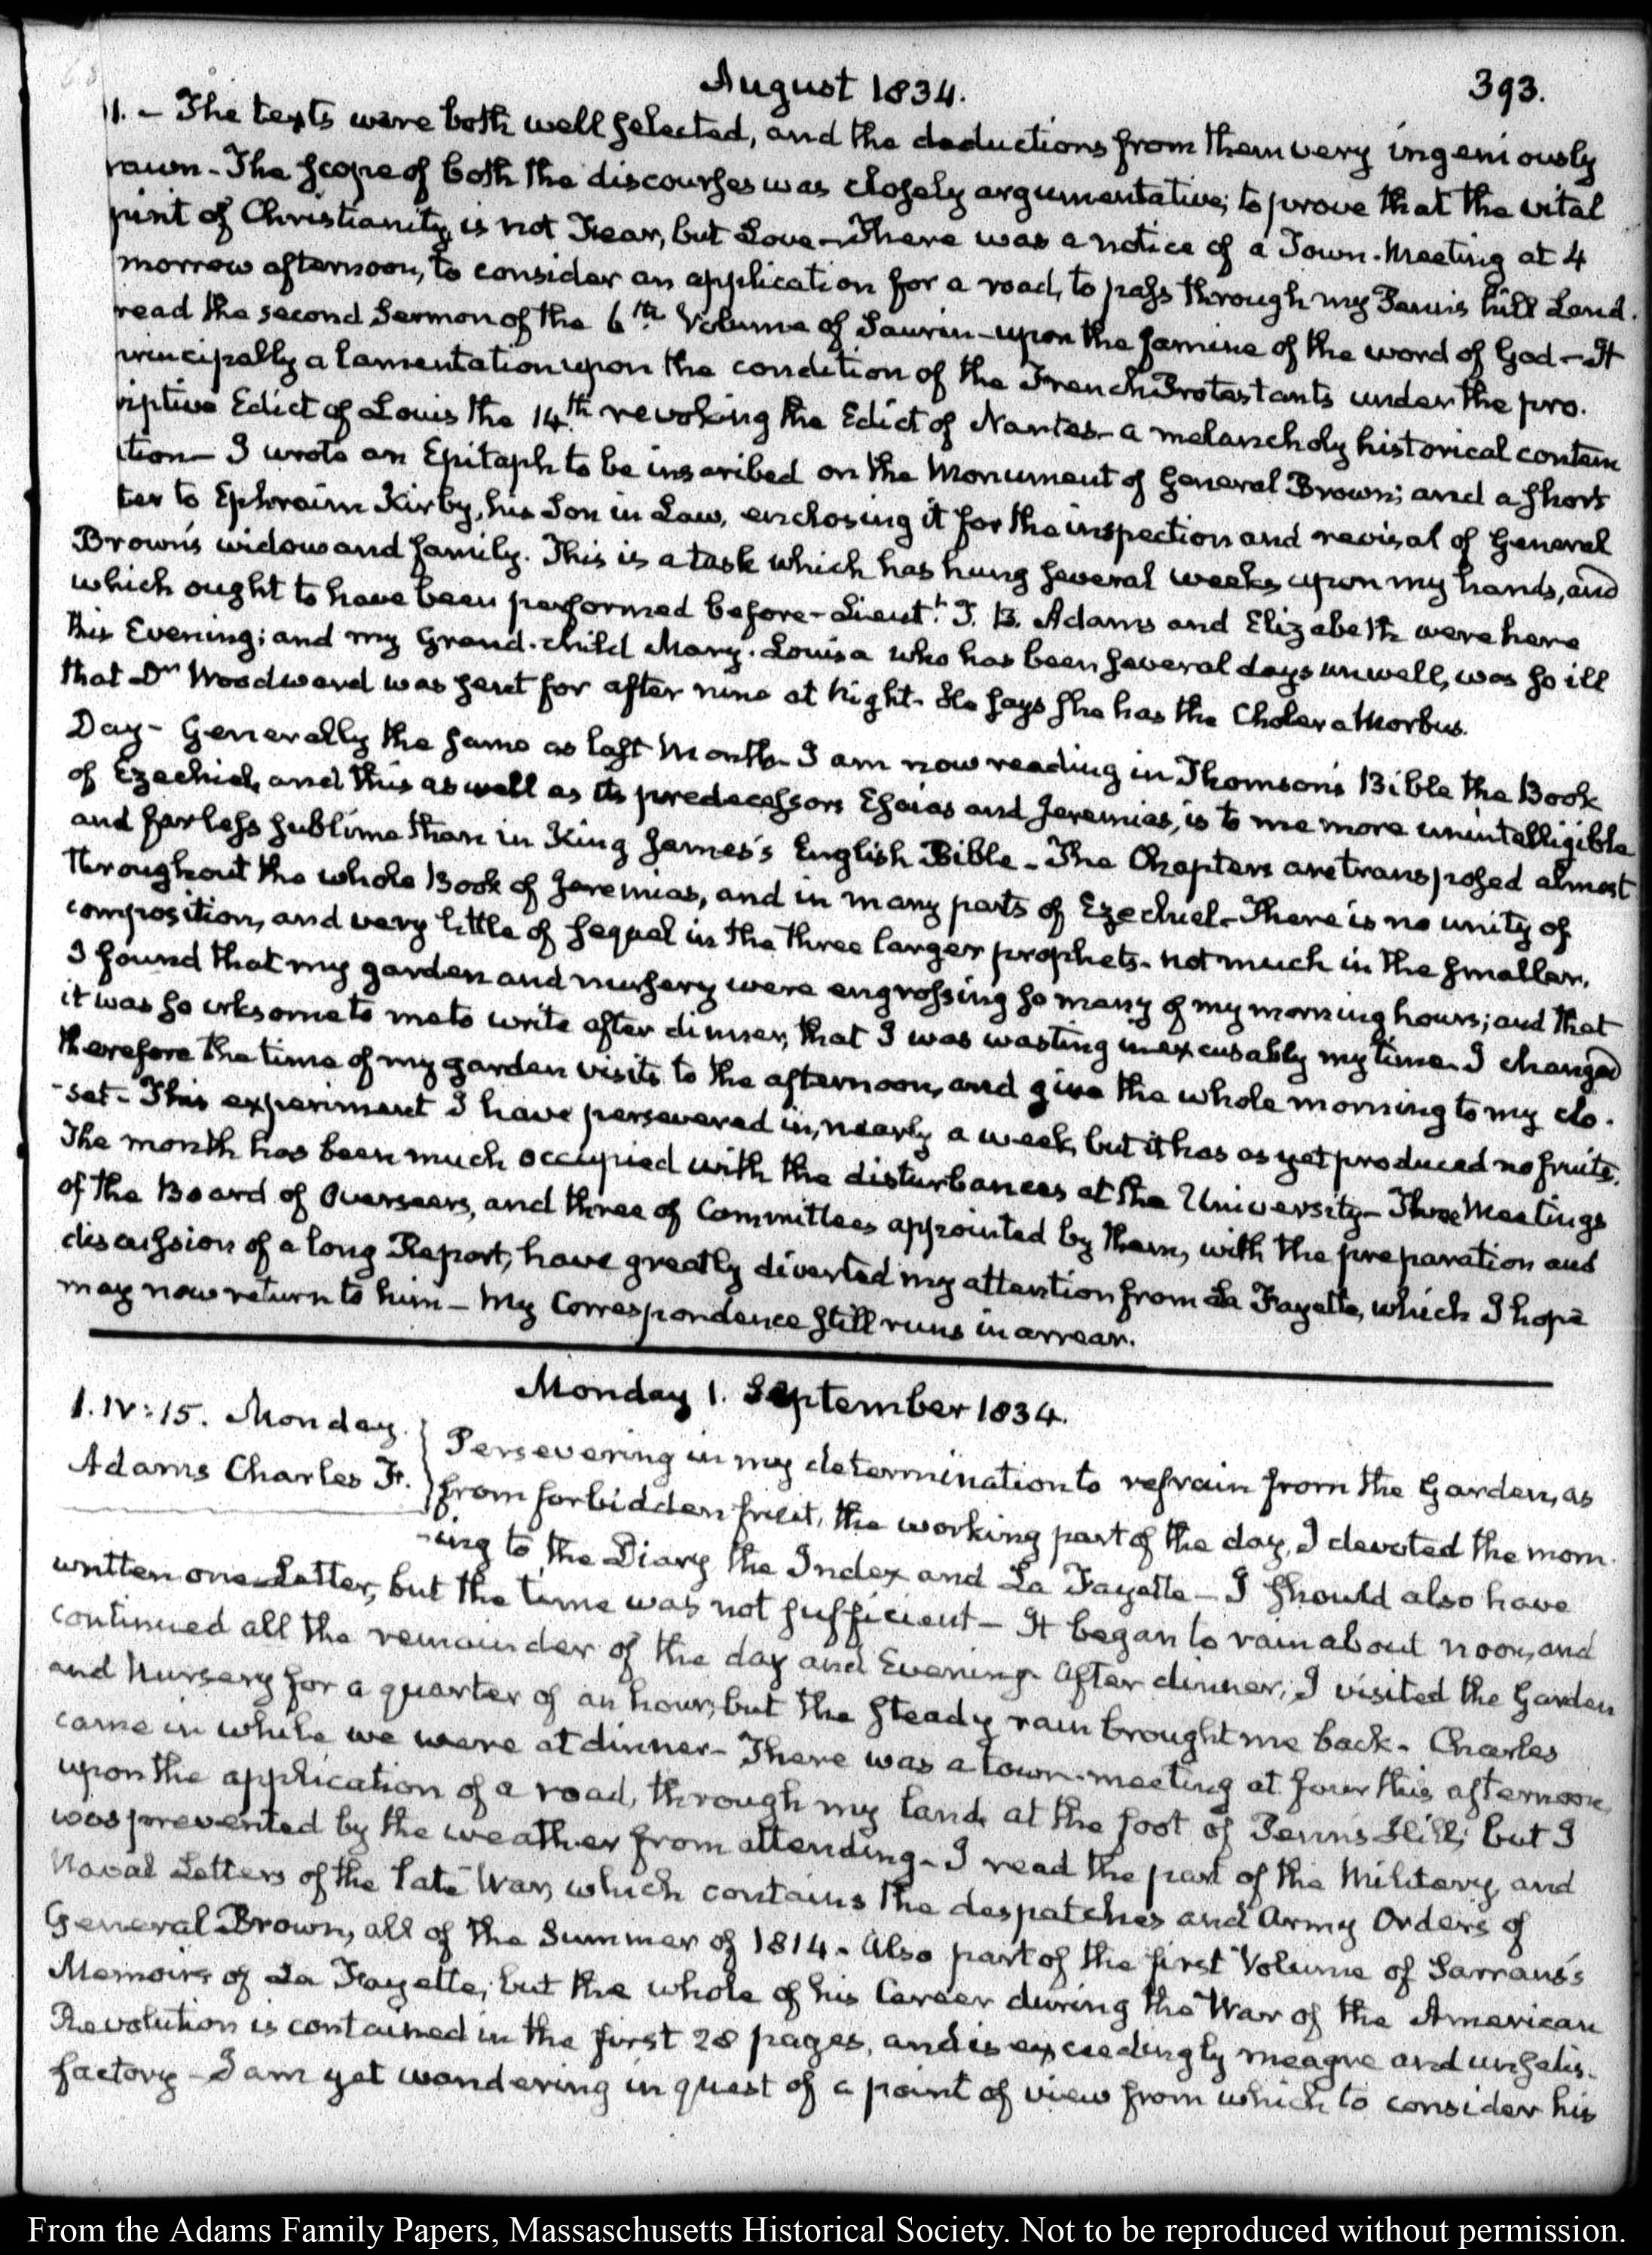 August 1834.
393.
1. – The texts were both well selected, and the deductions from them very ingeniously
rawn – The scope of both the discourses was closely argumentative; to prove that the vital
pirit of Christianity, is not Fear, but Love – There was a notice of a Town-Meeting at 4
morrow afternoon, to consider an application for a road, to pass through my Penn's hill Land.
read the second Sermon of the 6th. Volume of Saurin – upon the famine of the word of God – It
rincipally a lamentation upon the condition of the French Protestants under the pro-
riptive Edict of Louis the 14th. revoking the Edict of Nantes – a melancholy historical contem
tion – I wrote an Epitaph to be inscribed on the Monument of General Brown; and a short
ter to Ephraim Kirby, his Son in Law, enclosing it for the inspection and revisal of General
Brown's widow and family. This is a task which has hung several weeks upon my hands, and
which ought to have been performed before – Lieutt. T. B. Adams and Elizabeth were here
this Evening; and my Grand-child Mary-Louisa who has been several days unwell, was so ill
that Dr Woodward was sent for after nine at Night – He says she has the Cholera Morbus.
Day – Generally the same as last Month – I am now reading in Thomson's Bible the Book
of Ezechiel, and this as well as its predecessors Esaias and Jeremias, is to me more unintelligible
and far less sublime than in King James's English Bible – The Chapters are transposed almost
throughout the whole Book of Jeremias, and in many parts of Ezechiel – There is no unity of
composition, and very little of sequel in the three larger prophets – not much in the smaller.
I found that my garden and nursery were engrossing so many of my morning hours; and that
it was so irksome to me to write after dinner, that I was wasting inexcusably my time. I changed
therefore the time of my garden visits to the afternoon, and give the whole morning to my clo-
-set – This experiment I have persevered in, nearly a week, but it has as yet produced no fruits.
The month has been much occupied with the disturbances at the University – Three Meetings
of the Board of Overseers, and three of Committees appointed by them, with the preparation and
discussion of a long Report, have greatly diverted my attention from La Fayette, which I hope
may now return to him – My Correspondence still runs in arrear.
Monday 1. September 1834.
1. IV: 15. Monday.
Adams Charles F.
Persevering in my determination to refrain from the Garden, as
from forbidden fruit, the working part of the day, I devoted the morn-
-ing to the Diary the Index and La Fayette – I should also have
written one Letter, but the time was not sufficient – It began to rain about noon, and
continued all the remainder of the day and Evening – After dinner, I visited the Garden
and Nursery for a quarter of an hour; but the steady rain brought me back – Charles
came in while we were at dinner – There was a town-meeting at four this afternoon,
upon the application of a road, through my land at the foot of Penn's Hill; but I
was prevented by the weather from attending – I read the part of the Military and
Naval Letters of the late War, which contains the despatches and Army Orders of
General Brown, all of the Summer of 1814 – Also part of the first Volume of Sarrans's
Memoirs of La Fayette; but the whole of his Career during the War of the American
Revolution is contained in the first 28 pages, and is exceedingly meagre and unsatis-
factory – I am yet wandering in quest of a point of view from which to consider his
From the Adams Family Papers, Massachusetts Historical Society. Not to be reproduced without permission.